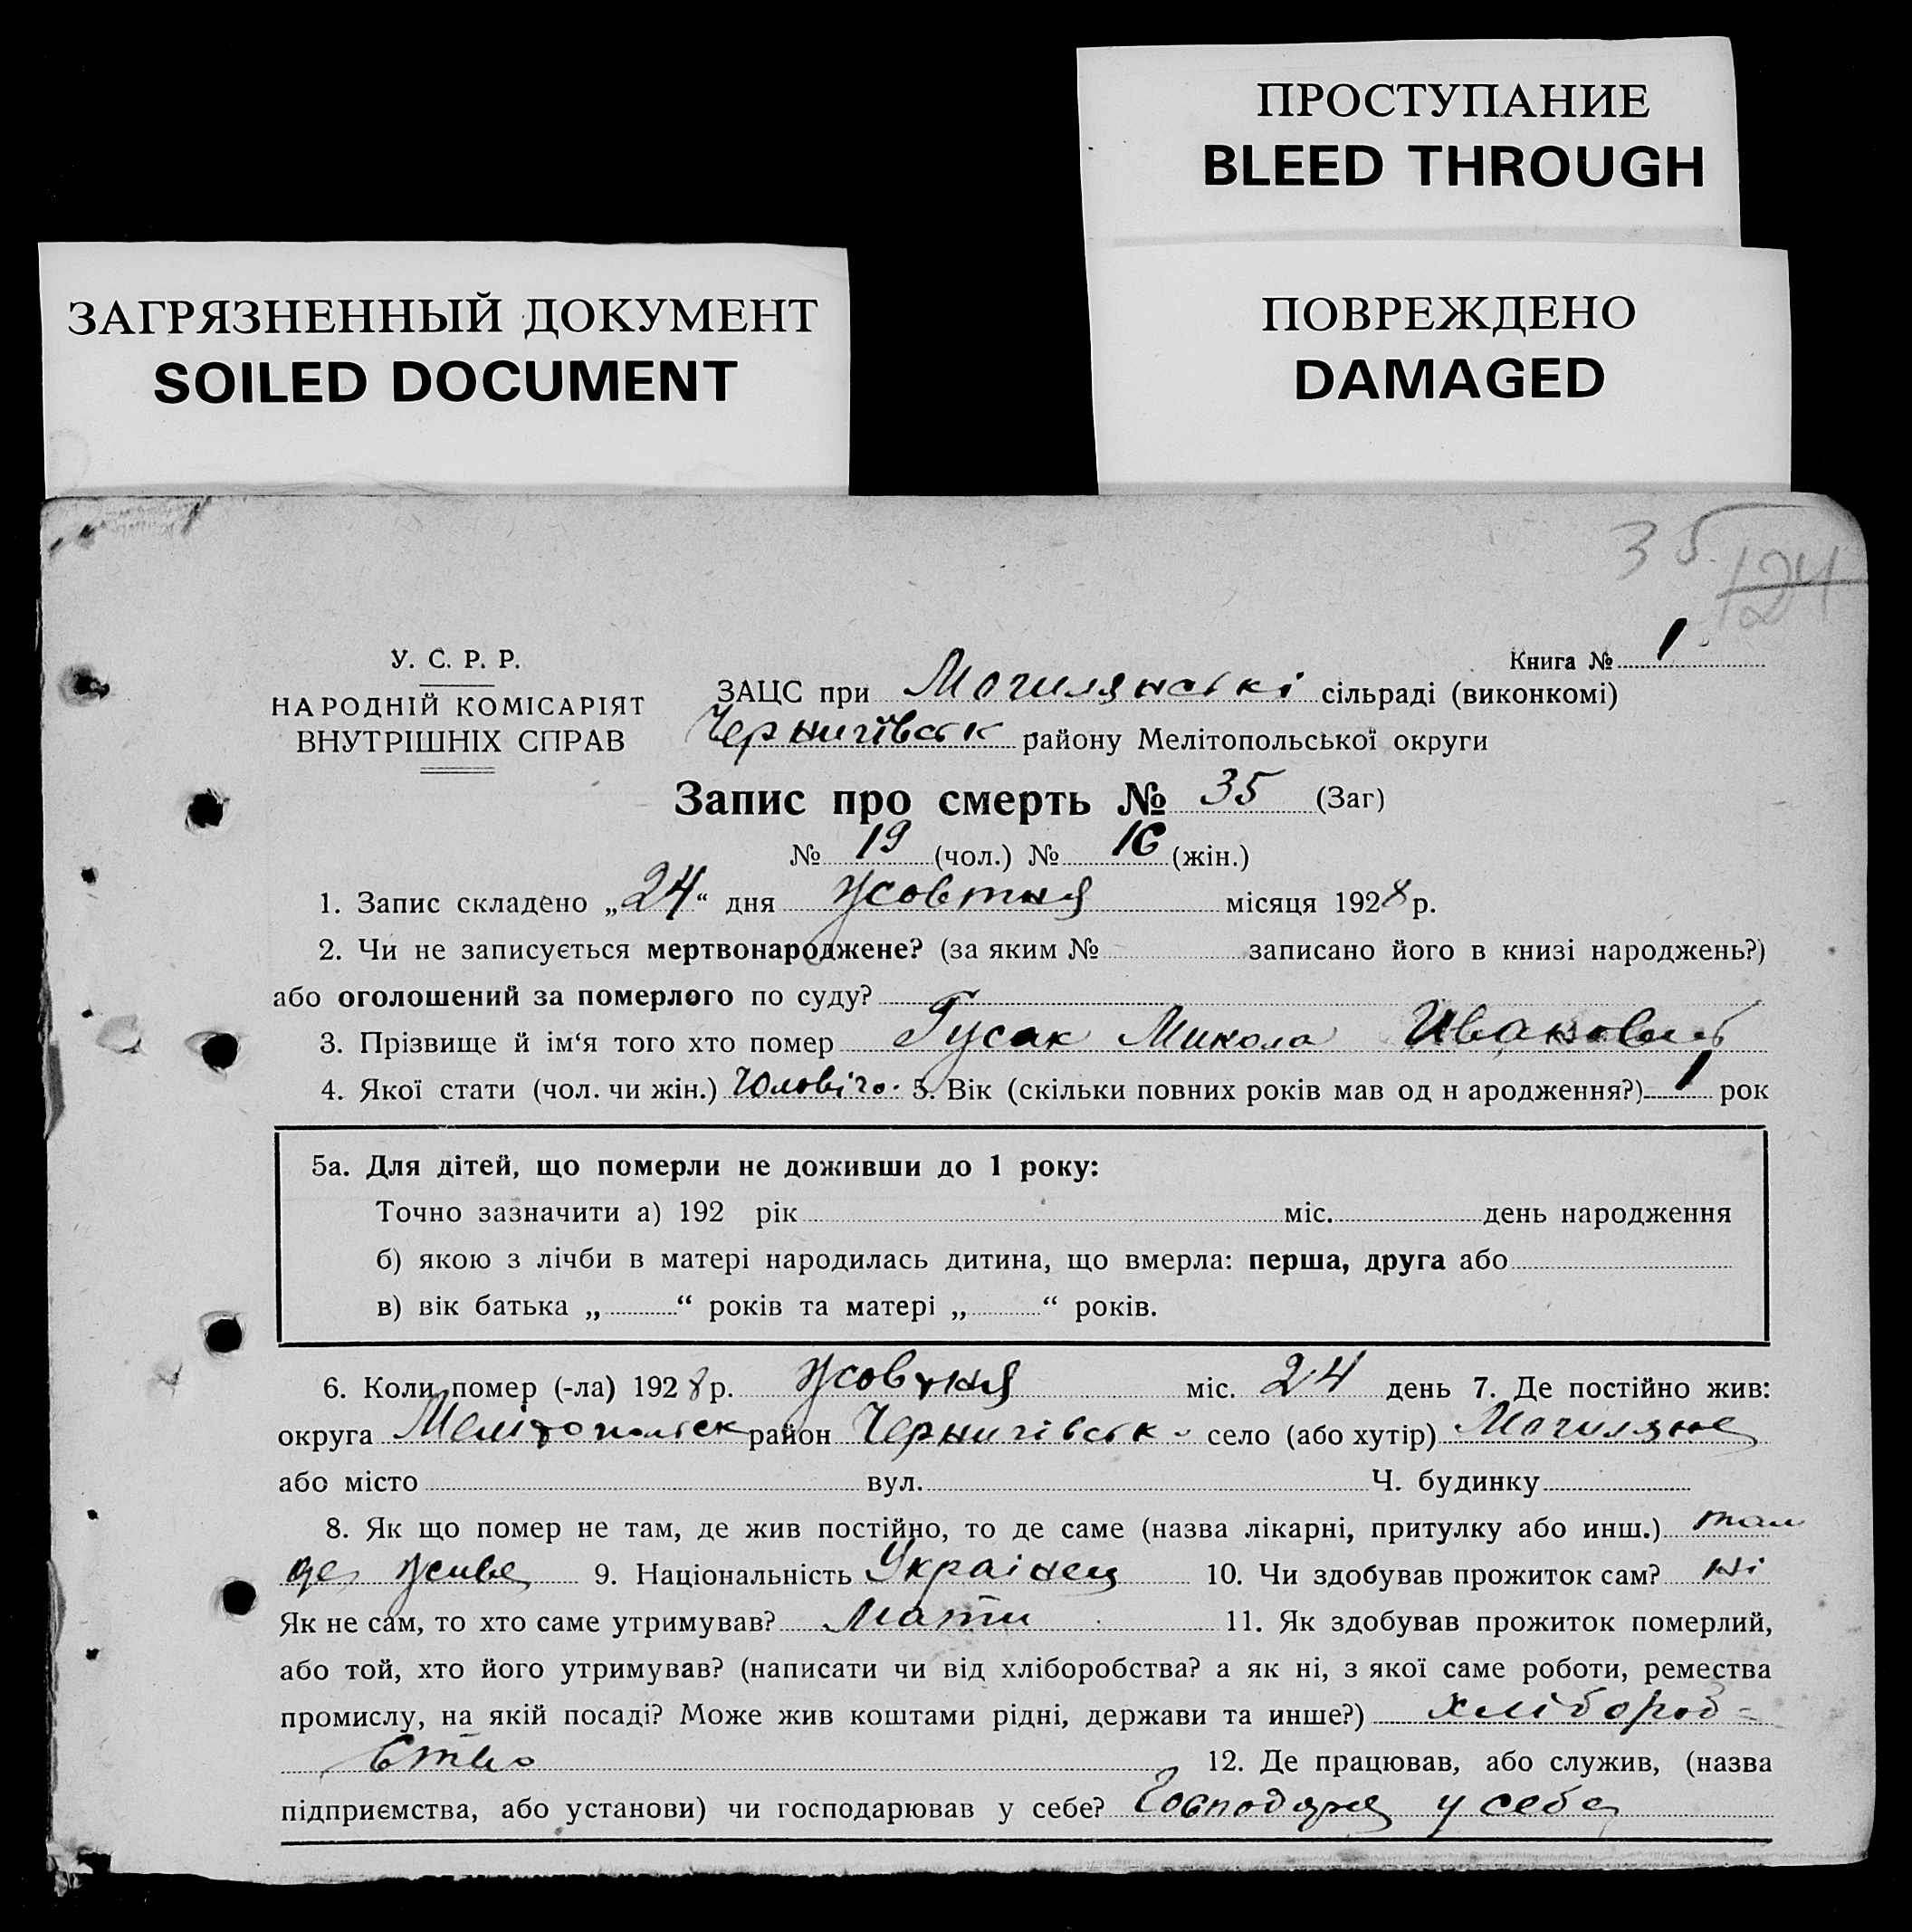 ПРОСТУПАНИЕ
BLEED THROUGH
ЗАГРЯЗНЕННЫЙ ДОКУМЕНТ
SOILED DOCUMENT
ПОВРЕЖДЕНО
DAMAGED
35
124
У. С. Р. Р.
НАРОДНІЙ КОМІСАРІЯТ
ВНУТРІШНІХ СПРАВ
Книга № 1
ЗАЦС при Могилянські сільраді (виконкомі)
Чернигівськ району Мелітопольської округи
Запис про смерть № 35 (Заг)
№ 19 (чол.) № 16 (жін.)
1. Запис складено „24“ дня жовтня місяця 1928 р.
2. Чи не записується мертвонароджене? (за яким № записано його в книзі народжень?)
або оголошений за померлого по суду?
3. Прізвище й ім‘я того хто помер Гусак Микола Иванович
4. Якої стати (чол. чи жін.) Чоловічо. 5. Вік (скільки повних років мав од н ародження?) 1 рок
5а. Для дітей, що померли не доживши до 1 року:
Точно зазначити а) 192 рік міс. день народження
б) якою з лічби в матері народилась дитина, що вмерла: перша, друга або
в) вік батька „ “ років та матері „ “ років.
6. Коли помер (-ла) 1928 р. жовтня міс. 24 день 7. Де постійно жив:
округа Мелітопольск район Чернигівськ - село (або хутір) Могиляне
або місто вул. Ч. будинку
8. Як що помер не там, де жив постійно, то де саме (назва лікарні, притулку або инш.) там
де живе 9. Національність Українец 10. Чи здобував прожиток сам? ні
Як не сам, то хто саме утримував? Мати 11. Як здобував прожиток померлий,
або той, хто його утримував? (написати чи від хліборобства? а як ні, з якої саме роботи, ремества
промислу, на якій посаді? Може жив коштами рідні, держави та инше?) хлібороб=
ство 12. Де працював, або служив, (назва
підприємства, або установи) чи господарював у себе? Господаря у себе